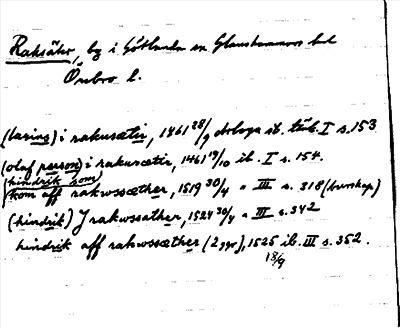 Raksäter, by i Götlunda sn Glanshammars hd
Örebro l.
(laring) i rakusætir, 1461 28/9 Arboga st. tänkeb. I s. 153
(olaf person) i rakusætir, 1461 19/10 ib. I s. 154.
(hindrik som)
kom aff rakwssæther, 1519 30/4 " III s. 318 (burskap)
(hindrik) J rakwssather, 1524 30/4 " III s. 342
hindrik aff rakwssæther (2 ggr), 1525 ib. III s. 352.
18/9